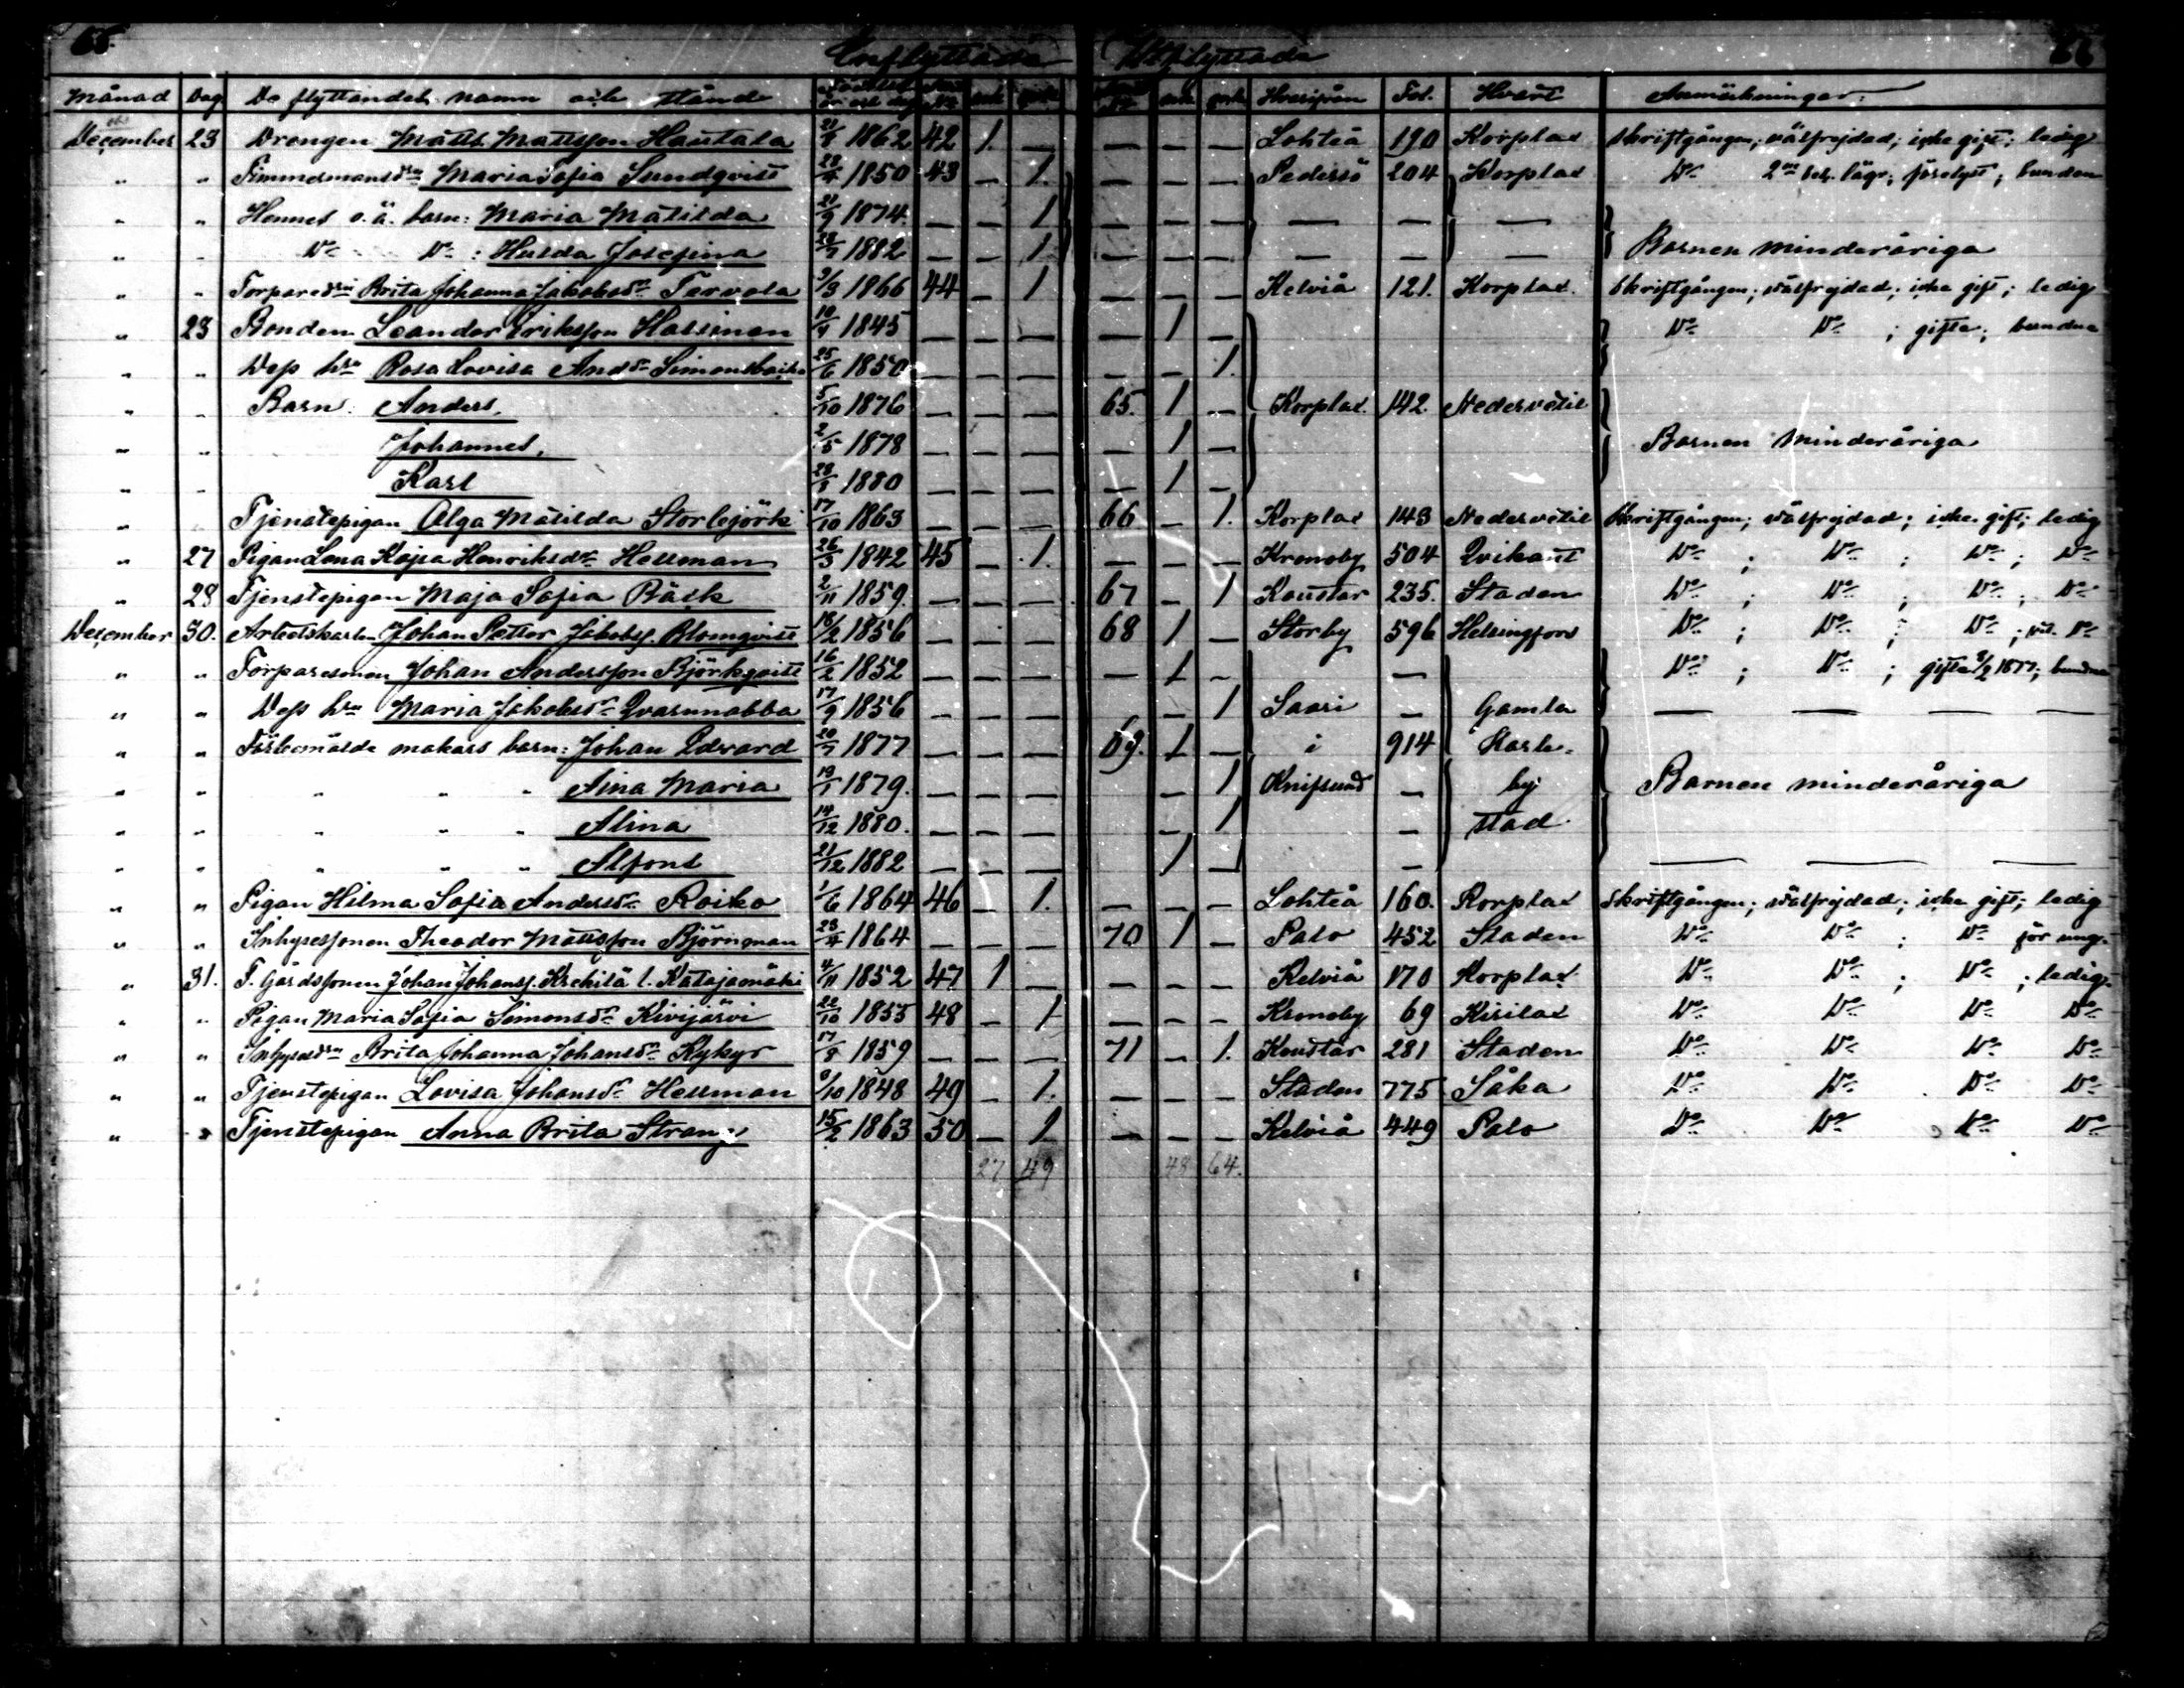 65. 66
Inflyttade Utflyttade
Månad Dag De flyttandes namn och stånd Hvarifrån Fol. Hvart Anmärkningar.
December 23 Drengen Matts Mattsson Hautala 21/8 1862 42 1. — — — — Lohteå 190 Korplax skriftgången; välfrejdad; icke gift; ledig
" " Timmermansdrn Maria Sofia Sundqvist 28/4 1850 43 — 1. — — — Pedersö 204 Korplax Do 2ne lägr; bunden
" " Hennes o.ä. barn: Maria Matilda 21/9 1874 — — 1 — — — — — —
" " Do Do: Hulda Josefina 28/7 1882 — — 1 — — — — — — Barnen minderåriga
" " Torparedrn Brita Johanna Jakobsdr Tarvola 9/3 1866 44 — 1 — — — Kelviå 121. Korplax. Skriftgången; välfrejdad; icke gift; ledig
" 23 Bonden Leander Eriksson Hassinen 10/4 1845 — — — — 1 — Do Do; gifta; bundna
" " Dess hu Rosa Lovisa Andsdr Simonsbacka 25/6 1850 — — — — — 1.
" " Barn: Anders. 5/10 1876 — — — 65. 1 — Korplax. 142. Nedervetil
" " Johannes. 2/5 1878 — — — — 1 — Barnen minderåriga
" " Karl 28/8 1880 — — — — 1 —
" " Tjenstepigan Olga Matilda Storbjörk 17/10 1863 — — — 66 — 1. Korplax 143 Nedervetil Skriftgången; välfrejdad; icke gift; ledig
" 27 Pigan Lena Kajsa Henriksdr Hellman 26/3 1842 45 — 1. — — — Kronoby 504 Qvikant Do; Do; Do; Do
" 28 Tjenstepigan Maja Sofia Bäck 2/11 1859. — — — 67 — 1 Kaustar 235. Staden Do; Do; Do; Do
December 30. Arbetskarlen Johan Petter Jakobss. Blomqvist 18/2 1856 — — — 68 1 — Storby 596 Helsingfors Do; Do; Do; Do
" " Torparesonen Johan Andersson Björkqvist 16/2 1852 — — — — 1 — — Do; Do; gifta 8/2 1877; bundna
" " Dess hu Maria Jakobsdr Qvarnnabba 17/9 1856 — — — — — 1 Saari — Gamla — — — —
" " Förbemälde makars barn: Johan Edvard 20/7 1877 — — — 69. 1 — i 914 Karle-
" " " " " Aina Maria 19/1 1879. — — — — — 1 Knifsund — by Barnen minderåriga
" " " " " Alina 14/12 1880. — — — — 1 — stad
" " " " " Alfons 21/12 1882 — — — 1 — — — — —
" " Pigan Hilma Sofia Andersdr Roiko 1/6 1864 46 — 1. — — — Lohteå 160. Korplax Skriftgången; välfrejdad; icke gift; ledig
" " Inhysessonen Theodor Mattsson Björnman 23/4 1864 — — — 70 1 — Palo 452 Staden Do Do; Do för ung.
" 31. F. Gårdssonen Johan Johanss. Krekilä l. Katajamäki 4/11 1852 47 1 — — — — Kelviå 170 Korplax Do Do; Do; ledig.
" " Pigan Maria Sofia Simonsdr Kivijärvi 22/10 1855 48 — 1 — — — Kronoby 69 Kirilax Do Do Do Do
" " Inhysesdrn Brita Johanna Johansdr Kykyr 17/8 1859 — — — 71 — 1. Kaustar 281 Staden Do Do Do Do
" " Tjenstepigan Lovisa Johansdr Hellman 9/10 1848 49 — 1. — — — Staden 775 Såka Do Do Do Do
" " Tjenstepigan Anna Brita Strang 15/2 1863 50 — 1 — — — Kelviå 449 Palo Do Do Do Do
27 49 48 64.